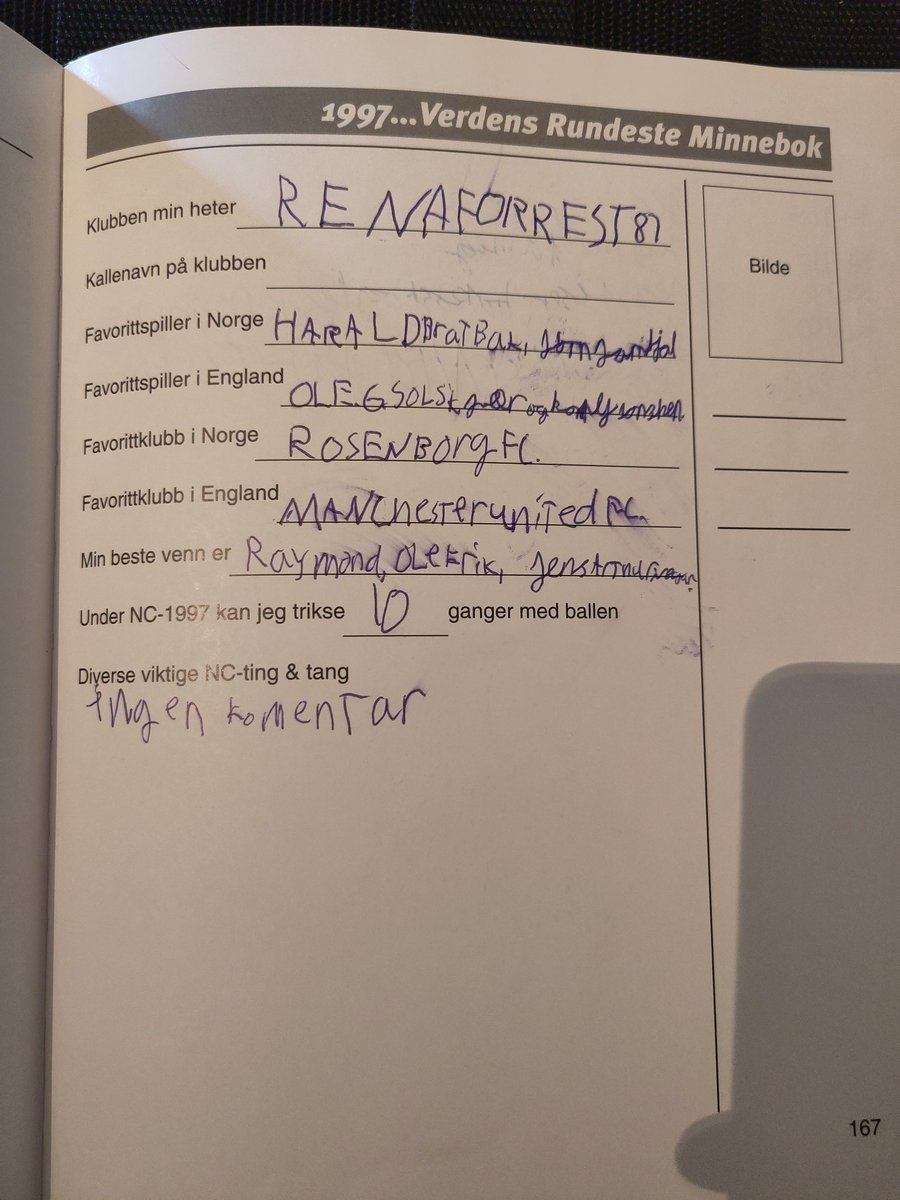 1997...Verdens Rundeste Minnebok
Klubben min heter RENAFORREST87
Bilde
Kallenavn på klubben
Favorittspiller i Norge HARALDBratBak,
Favorittspiller i England OLEGSOLSkjær og
Favorittklubb i Norge ROSENBOrgFC.
Favorittklubb i England MANChesTerunited FC.
Min beste venn er Raymond, OLeErik,
Under NC-1997 kan jeg trikse 10 ganger med ballen
Diverse viktige NC-ting & tang
Ingen komenTar
167